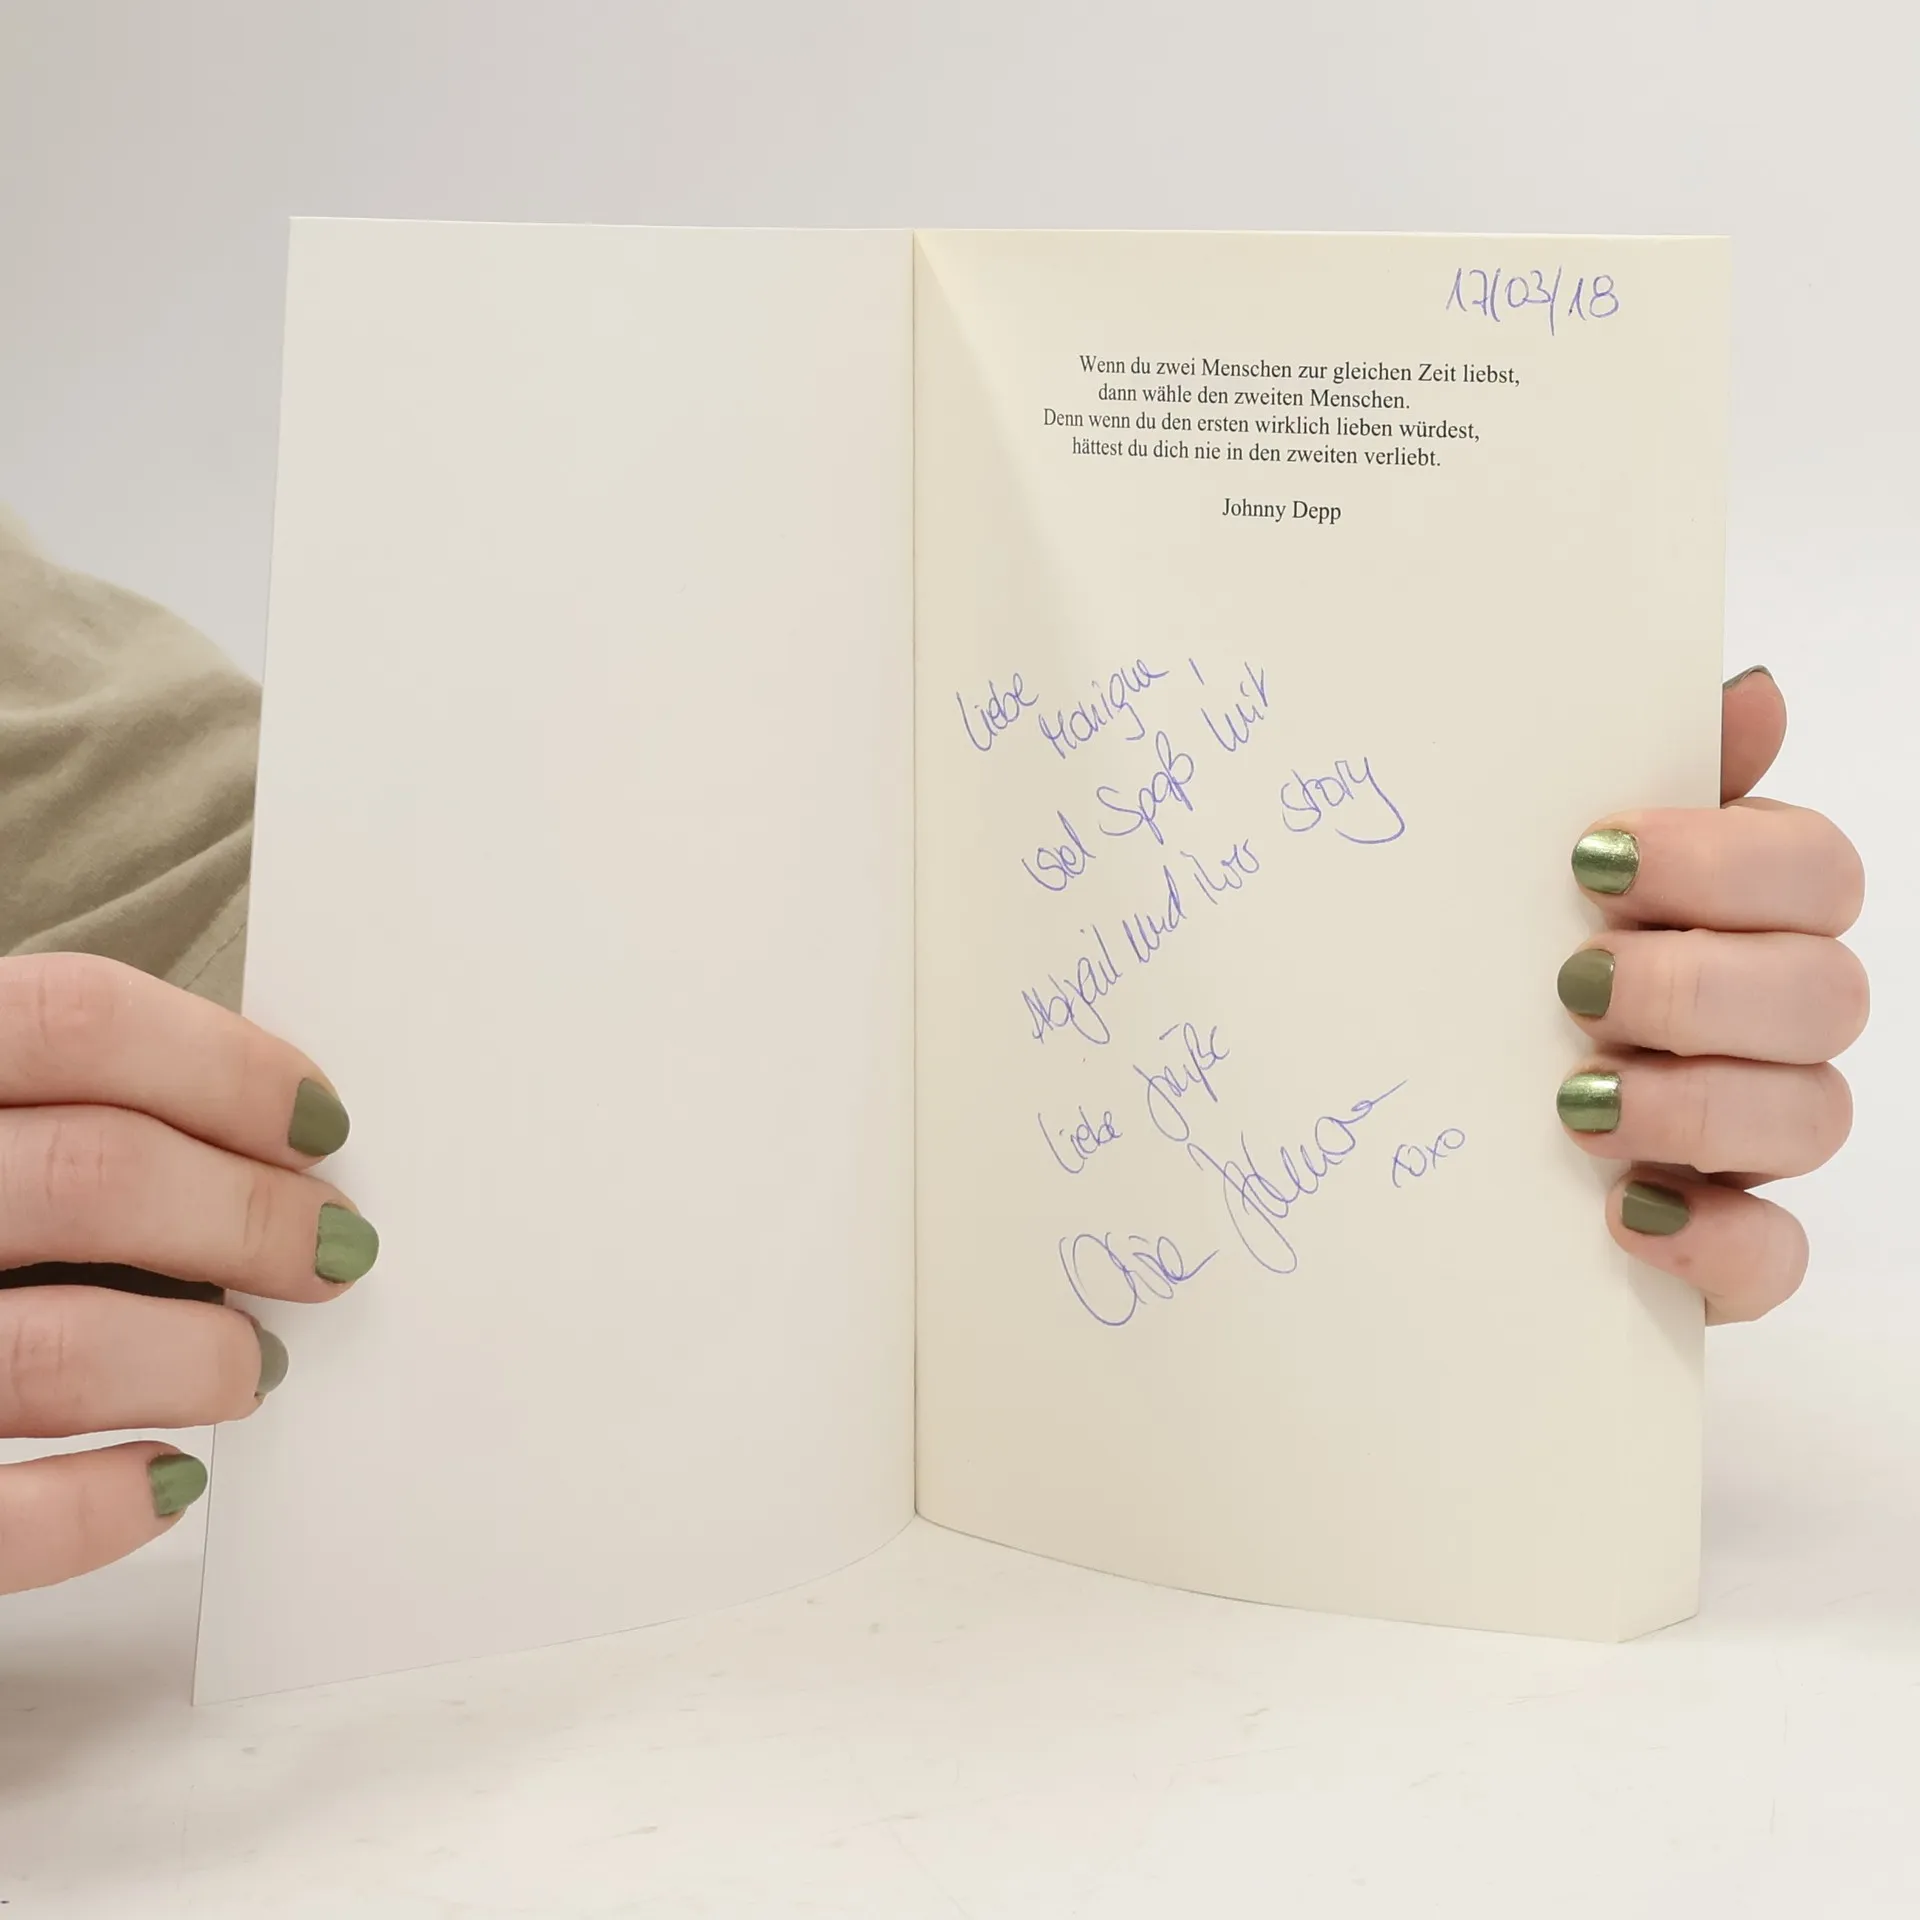 17/03/18
Wenn du zwei Menschen zur gleichen Zeit liebst,
dann wähle den zweiten Menschen.
Denn wenn du den ersten wirklich lieben würdest,
hättest du dich nie in den zweiten verliebt.
Johnny Depp
Liebe Monique,
viel Spaß mit
Abigail und ihrer Story
Liebe Grüße
xoxo